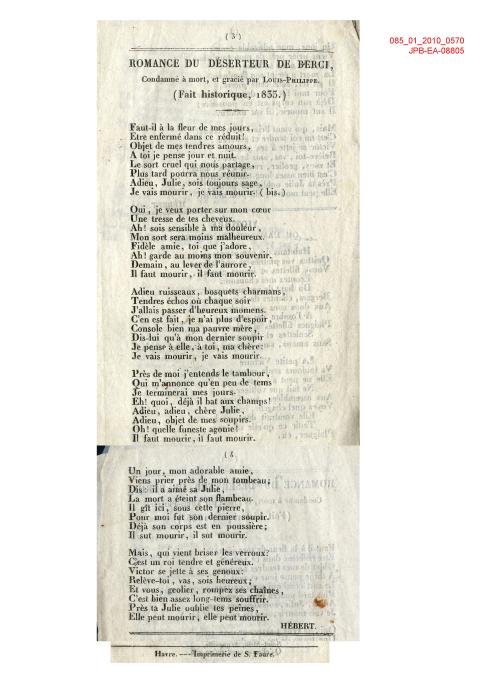 085_01_2010_0570
JPB-EA-08805
( 3 )
ROMANCE DU DÉSERTEUR DE BERCI,
Condamné à mort, et gracié par Louis-Philippe.
(Fait historique, 1835.)
Faut-il à la fleur de mes jours,
Etre enfermé dans ce réduit!
Objet de mes tendres amours,
A toi je pense jour et nuit.
Le sort cruel qui nous partage,
Plus tard pourra nous réunir.
Adieu, Julie, sois toujours sage,
Je vais mourir, je vais mourir. ( bis. )
Oui, je veux porter sur mon cœur
Une tresse de tes cheveux.
Ah! sois sensible à ma douleur,
Mon sort sera moins malheureux.
Fidèle amie, toi que j'adore,
Ah! garde au moins mon souvenir.
Demain, au lever de l'aurore,
Il faut mourir, il faut mourir.
Adieu ruisseaux, bosquets charmans,
Tendres échos où chaque soir
J'allais passer d'heureux momens.
C'en est fait, je n'ai plus d'espoir,
Console bien ma pauvre mère,
Dis-lui qu'à mon dernier soupir
Je pense à elle, à toi, ma chère:
Je vais mourir, je vais mourir.
Près de moi j'entends le tambour,
Qui m'annonce qu'en peu de tems
Je terminerai mes jours.
Eh! quoi, déjà il bat aux champs!
Adieu, adieu, chère Julie,
Adieu, objet de mes soupirs.
Oh! quelle funeste agonie!
Il faut mourir, il faut mourir.
( 4
Un jour, mon adorable amie,
Viens prier près de mon tombeau;
Dis: il a aimé sa Julie,
La mort a éteint son flambeau.
Il gît ici, sous cette pierre,
Pour moi fut son dernier soupir.
Déjà son corps est en poussière;
Il sut mourir, il sut mourir.
Mais, qui vient briser les verroux?
C'est un roi tendre et généreux.
Victor se jette à ses genoux:
Relève-toi, vas, sois heureux;
Et vous, geolier, rompez ses chaînes,
C'est bien assez long-tems souffrir.
Près ta Julie oublie tes peines,
Elle peut mourir, elle peut mourir.
HÉBERT.
Havre. --- Imprimerie de S. Faure.